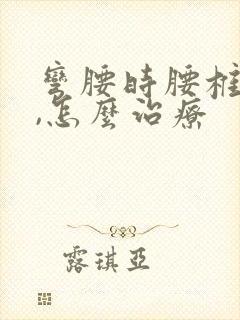 彎腰時腰椎
,怎麼治療
露琪亞